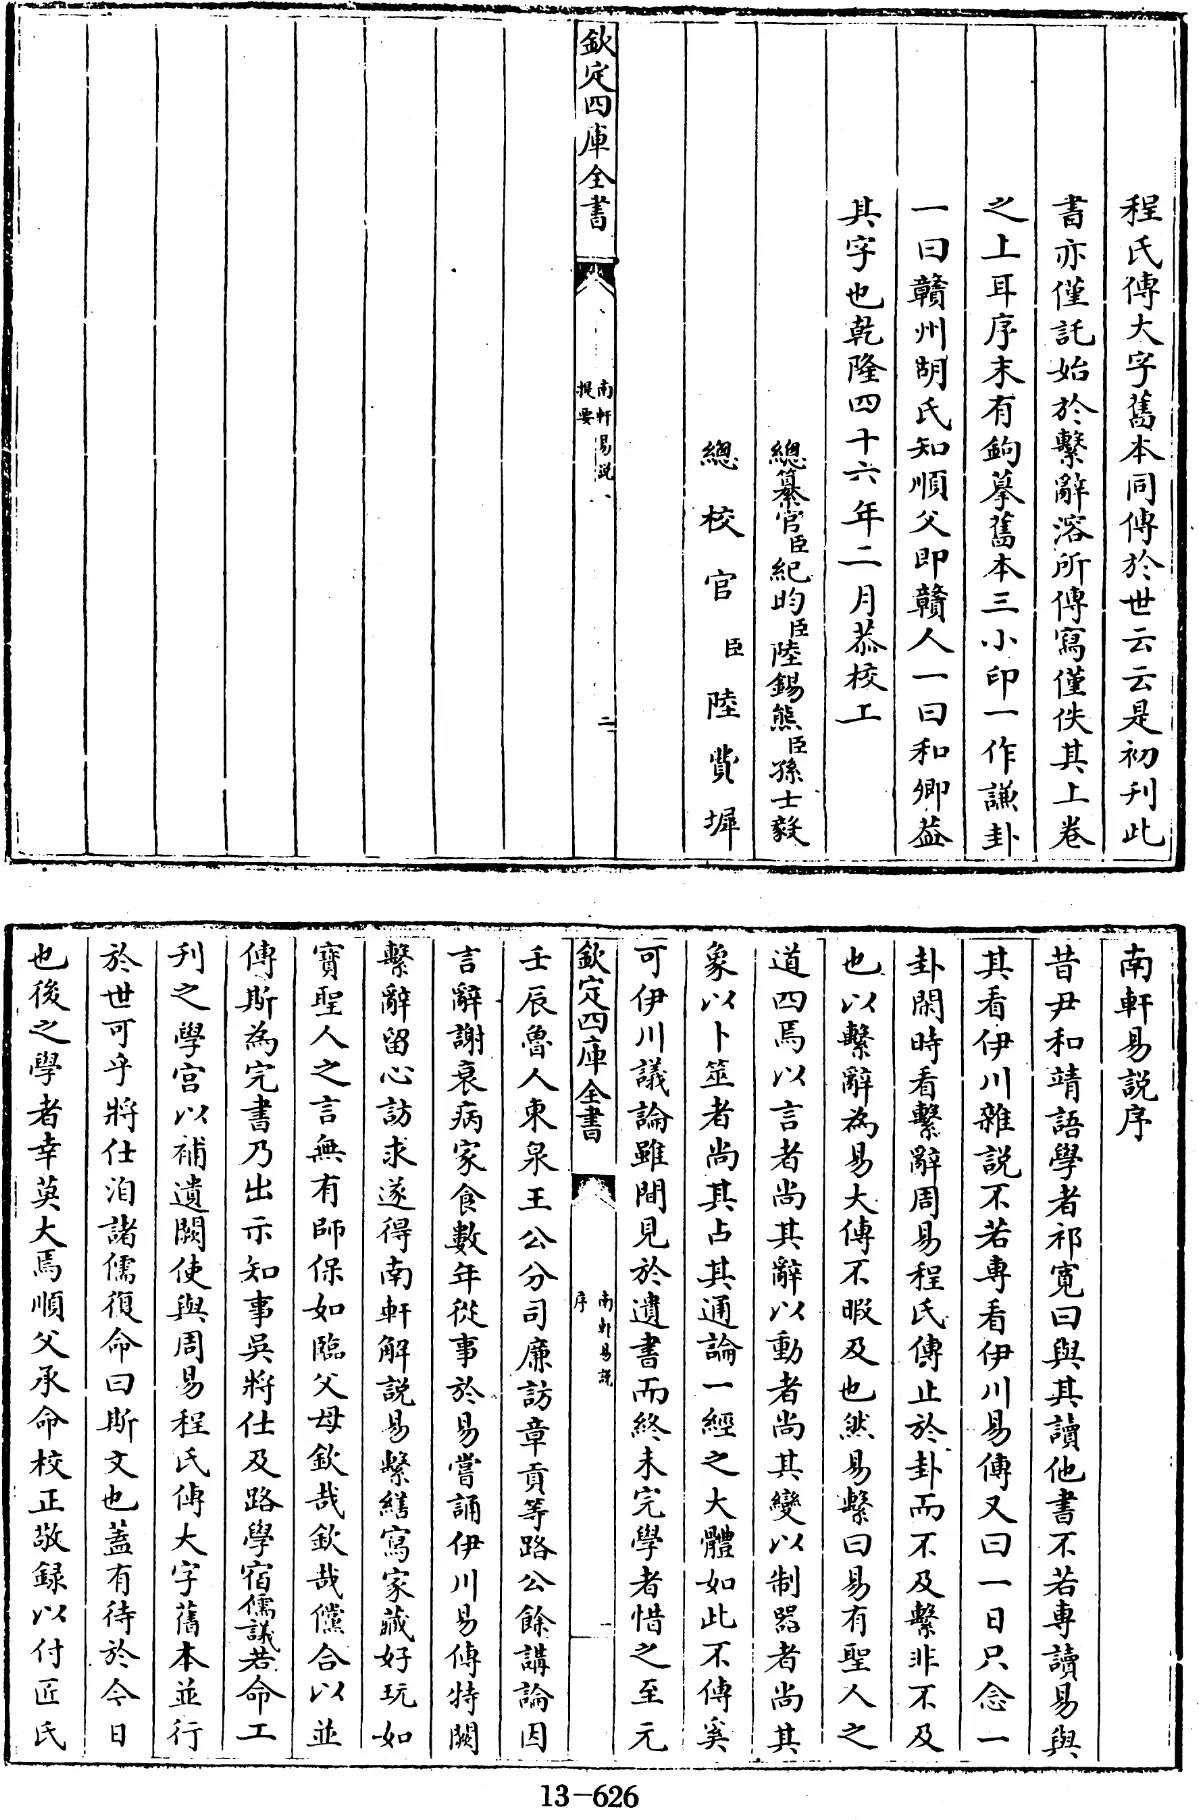 程氏傳大字舊本同傳於世云云是初刋此
書亦僅託始於繫辭溶所傳寫僅佚其上卷
之上耳序末有鉤摹舊本三小印一作謙卦
一曰贛州胡氏知順父即贛人一曰和卿葢
其字也乾隆四十六年二月恭校上
總纂官臣紀昀臣陸錫熊臣孫士毅
總校官臣陸費墀
欽定四庫全書
南軒易說
提要
二
南軒易說序
昔尹和靖語學者祁寛曰與其讀他書不若專讀易與
其看伊川雜説不若專看伊川易傳又曰一日只念一
卦閑時看繫辭周易程氏傳止於卦而不及繫非不及
也以繫辭為易大傳不暇及也然易繫曰易有聖人之
道四焉以言者尚其辭以動者尚其變以制器者尚其
象以卜筮者尚其占其通論一經之大體如此不傳奚
可伊川議論雖間見於遺書而終未完學者惜之至元
欽定四庫全書
南軒易說
序
一
壬辰魯人東泉王公分司廉訪章貢等路公餘講論因
言辭謝衰病家食數年從事於易嘗誦伊川易傳特闕
繫辭留心訪求遂得南軒解説易繫繕寫家藏好玩如
寶聖人之言無有師保如臨父母欽哉欽哉儻合以並
傳斯為完書乃出示知事吳將仕及路學宿儒議若命工
刋之學宫以補遺闕使與周易程氏傳大字舊本並行
於世可乎將仕洎諸儒復命曰斯文也蓋有待於今日
也後之學者幸莫大焉順父承命校正敬録以付匠氏
13-626